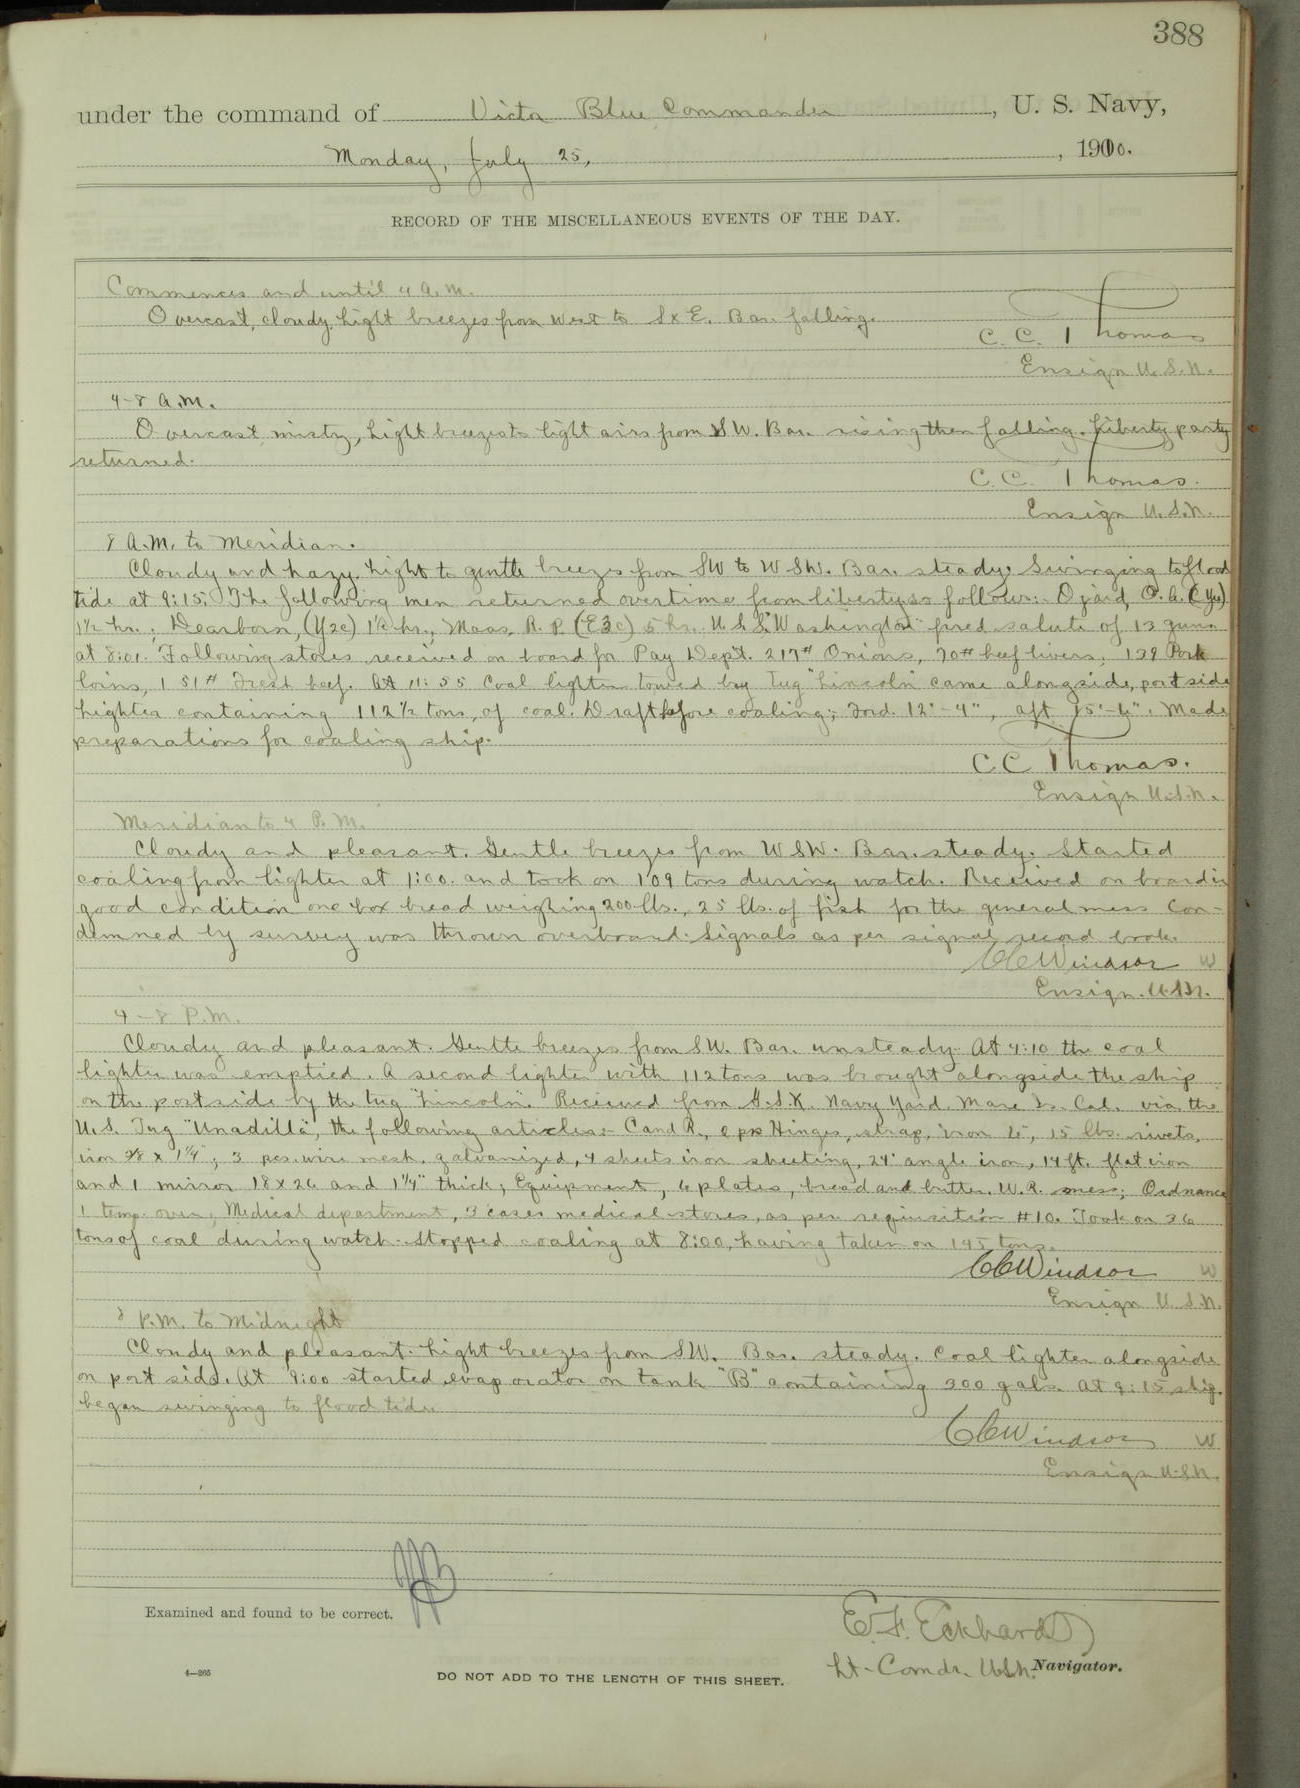 388
under the command of Victor Blue Commander, U. S. Navy,
Monday, July 25, , 1910.
RECORD OF THE MISCELLANEOUS EVENTS OF THE DAY.
Commences and until 4 A.M.
Overcast, cloudy. Light breezes from West to SxE. Bar. falling.
C. C. Thomas
Ensign U.S.N.
4-8 A.M.
Overcast, misty, Light breezes to light airs from SW. Bar. rising then falling. Liberty party
returned.
C. C. Thomas.
Ensign U.S.N.
8 A.M. to Meridian.
Cloudy and hazy. Light to gentle breezes from SW to WSW. Bar. steady. Swinging to flood
tide at 9:15. The following men returned overtime from liberty as follows:- Ojard, O. A.
1½ hr.; Dearborn, (Y2c) 1½ hr., Maas, R. P. (E3c) 5 hrs. U.S.S. "Washington" fired salute of 13 guns
at 8:01. Following stores received on board for Pay Dept. 217# Onions, 70# beef livers, 139 Pork
loins, 151# Fresh beef. At 11:55 Coal lighter towed by tug "Lincoln" came alongside, port side
lighter containing 112½ tons, of coal. Draft before coaling; Ford. 12'-4", aft 15'-6". Made
preparations for coaling ship.
C C Thomas.
Ensign U.S.N.
Meridian to 4 P.M.
Cloudy and pleasant. Gentle breezes from WSW. Bar. steady. Started
coaling from lighter at 1:00. and took on 109 tons during watch. Received on board in
good condition one box bread weighing 200 lbs., 25 lbs. of fish for the general mess con-
demned by survey was thrown overboard. Signals as per signal record book.
CCWindsor W
Ensign. U.S.N.
4-8 P.M.
Cloudy and pleasant. Gentle breezes from SW. Bar. unsteady. At 4:10 the coal
lighter was emptied. A second lighter with 112 tons was brought alongside the ship
on the port side by the tug "Lincoln". Received from G.S.K. Navy Yard, Mare Is. Cal. via the
U.S. Tug "Unadilla", the following articles:- C and R., prs Hinges, strap, iron 6", 15 lbs. rivets,
iron 3/8 x 1¼"; 3 pcs. wire mesh, galvanized, 4 sheets iron sheeting, 24' angle iron, 14 ft. flat iron
and 1 mirror 18 x 26 and 1¼" thick; Equipment, 6 plates, bread and butter, W.R. mess; Ordnance
1 temp. oven; Medical department, 3 cases medical stores, as per requisition #10. Took on 36
tons of coal during watch. Stopped coaling at 8:00, having taken on 145 tons.
CCWindsor W
Ensign U.S.N.
8 P.M. to Midnight
Cloudy and pleasant. Light breezes from SW. Bar. steady. Coal lighter alongside
on port side. At 9:00 started evaporator on tank "B" containing 300 gals. At 9:15 ship
began swinging to flood tide.
CCWindsor W
Ensign U.S.N.
Examined and found to be correct.
E. F. Eckhardt
Lt-Comdr. U.S.N. Navigator.
4—265
DO NOT ADD TO THE LENGTH OF THIS SHEET.